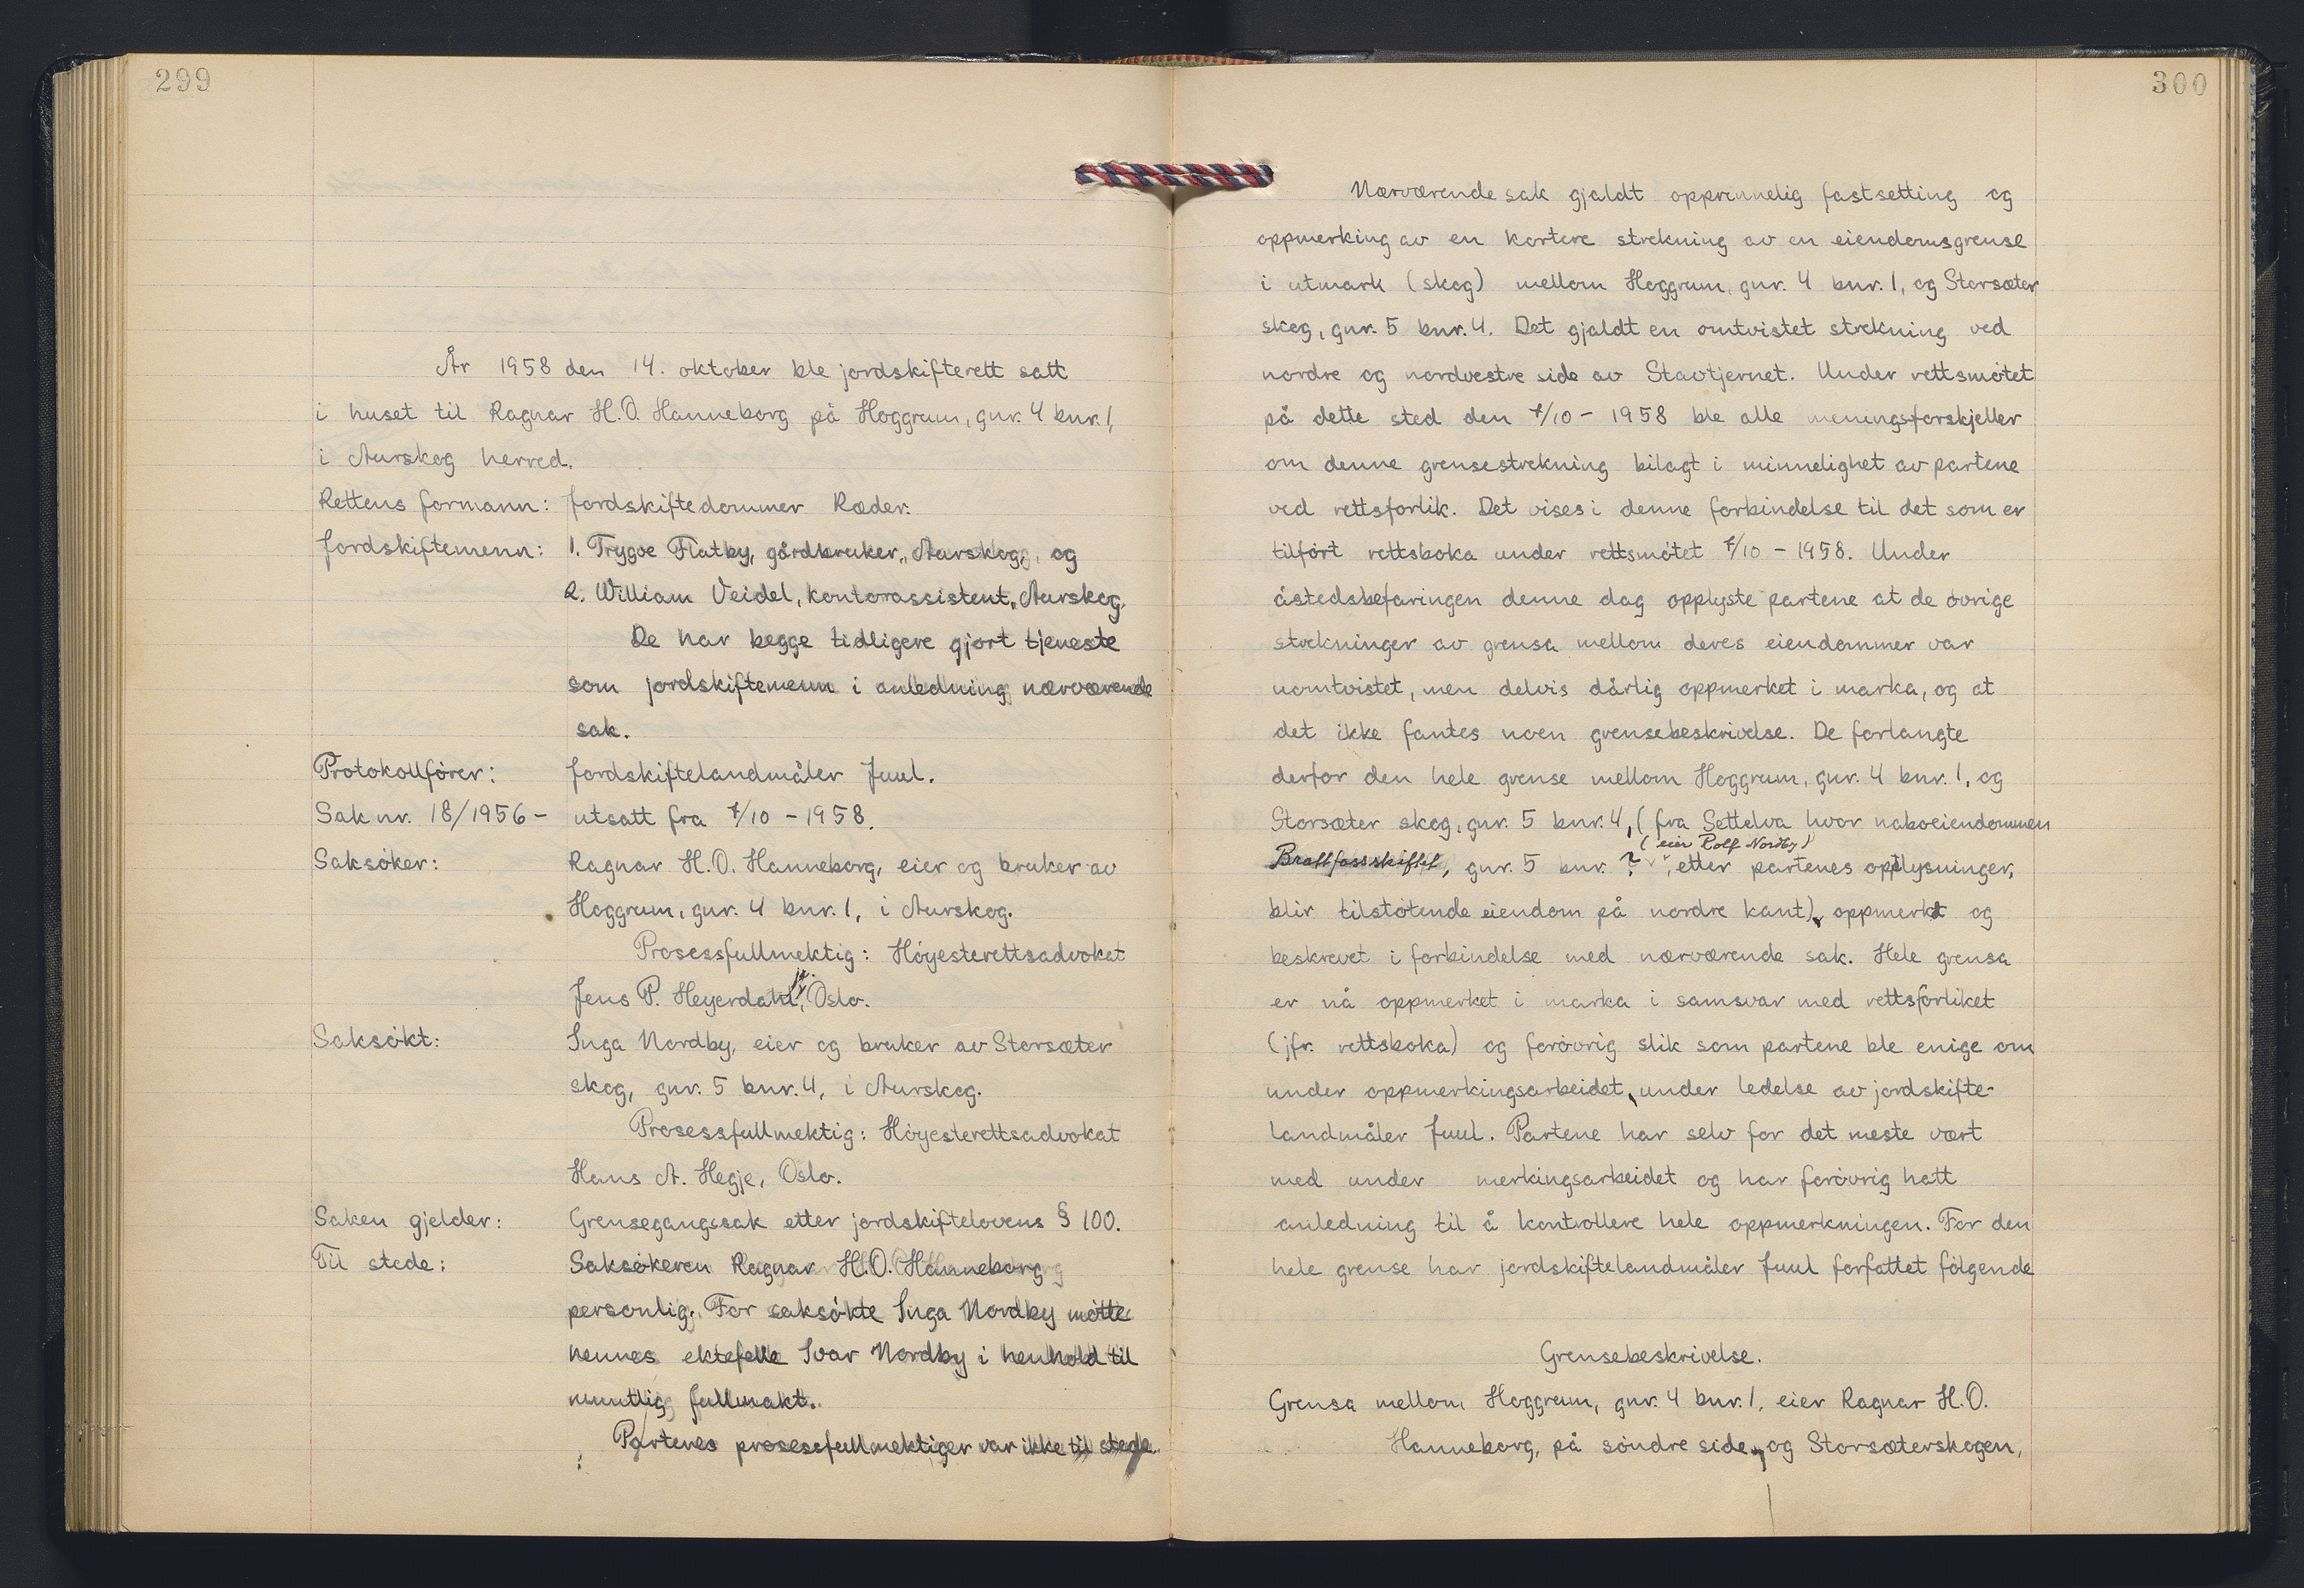 299
År 1958 den 14. oktober ble jordskifterett satt
i huset til Ragnar H.O. Hanneborg på Hoggrum, gnr. 4 bnr. 1,
i Aurskog herred.
Rettens formann: Jordskiftedommer Ræder.
Jordskiftemenn: 1. Trygve Flatby, gårdbruker, Aurskog, og
2. William Veidel, kontorassistent, Aurskog.
De har begge tidligere gjort tjeneste
som jordskiftemenn i anledning nærværende
sak.
Protokollfører: Jordskiftelandmåler Juul.
Sak nr. 18/1956 - utsatt fra 7/10 - 1958.
Saksøker: Ragnar H.O. Hanneborg, eier og bruker av
Hoggrum, gnr. 4 bnr. 1, i Aurskog.
Prosessfullmektig: Høyesterettsadvokat
Jens P. Heyerdahl, jr. Oslo.
Saksøkt: Inga Nordby, eier og bruker av Storsæter
skog, gnr. 5 bnr. 4, i Aurskog.
Prosessfullmektig: Høyesterettsadvokat
Hans A. Hegje, Oslo.
Saken gjelder: Grensegangssak etter jordskiftelovens § 100.
Til stede: Saksøkeren Ragnar H.O. Hanneborg
personlig. For saksøkte Inga Nordby møtte
hennes ektefelle Ivar Nordby i henhold til
muntlig fullmakt.
Partenes prosessfullmektiger var ikke til stede.
300
Nærværende sak gjaldt opprinnelig fastsetting og
oppmerking av en kortere strekning av en eiendomsgrense
i utmark (skog) mellom Hoggrum, gnr. 4 bnr. 1, og Storsæter
skog, gnr. 5 bnr. 4. Det gjaldt en omtvistet strekning ved
nordre og nordvestre side av Stavtjernet. Under rettsmøtet
på dette sted den 7/10 - 1958 ble alle meningsforskjeller
om denne grensestrekning bilagt i minnelighet av partene
ved rettsforlik. Det vises i denne forbindelse til det som er
tilført rettsboka under rettsmøtet 7/10 - 1958. Under
åstedsbefaringen denne dag opplyste partene at de øvrige
strekninger av grensa mellom deres eiendommer var
uomtvistet, men delvis dårlig oppmerket i marka, og at
det ikke fantes noen grensebeskrivelse. De forlangte
derfor den hele grense mellom Hoggrum, gnr. 4 bnr. 1, og
Storsæter skog, gnr. 5 bnr. 4, (fra Settelva hvor naboeiendommen
(eier Rolf Nordby)
Brattfossskiftet, gnr. 5 bnr. ?, etter partenes opplysninger,
blir tilstøtende eiendom på nordre kant), oppmerkt og
beskrevet i forbindelse med nærværende sak. Hele grensa
er nå oppmerket i marka i samsvar med rettsforliket
(jfr. rettsboka) og forøvrig slik som partene ble enige om
under oppmerkingsarbeidet, under ledelse av jordskifte-
landmåler Juul. Partene har selv for det meste vært
med under merkingsarbeidet og har forøvrig hatt
anledning til å kontrollere hele oppmerkningen. For den
hele grense har jordskiftelandmåler Juul forfattet følgende
Grensebeskrivelse.
Grensa mellom Hoggrum, gnr. 4 bnr. 1, eier Ragnar H.O.
Hanneborg, på søndre side, og Storsæterskogen,